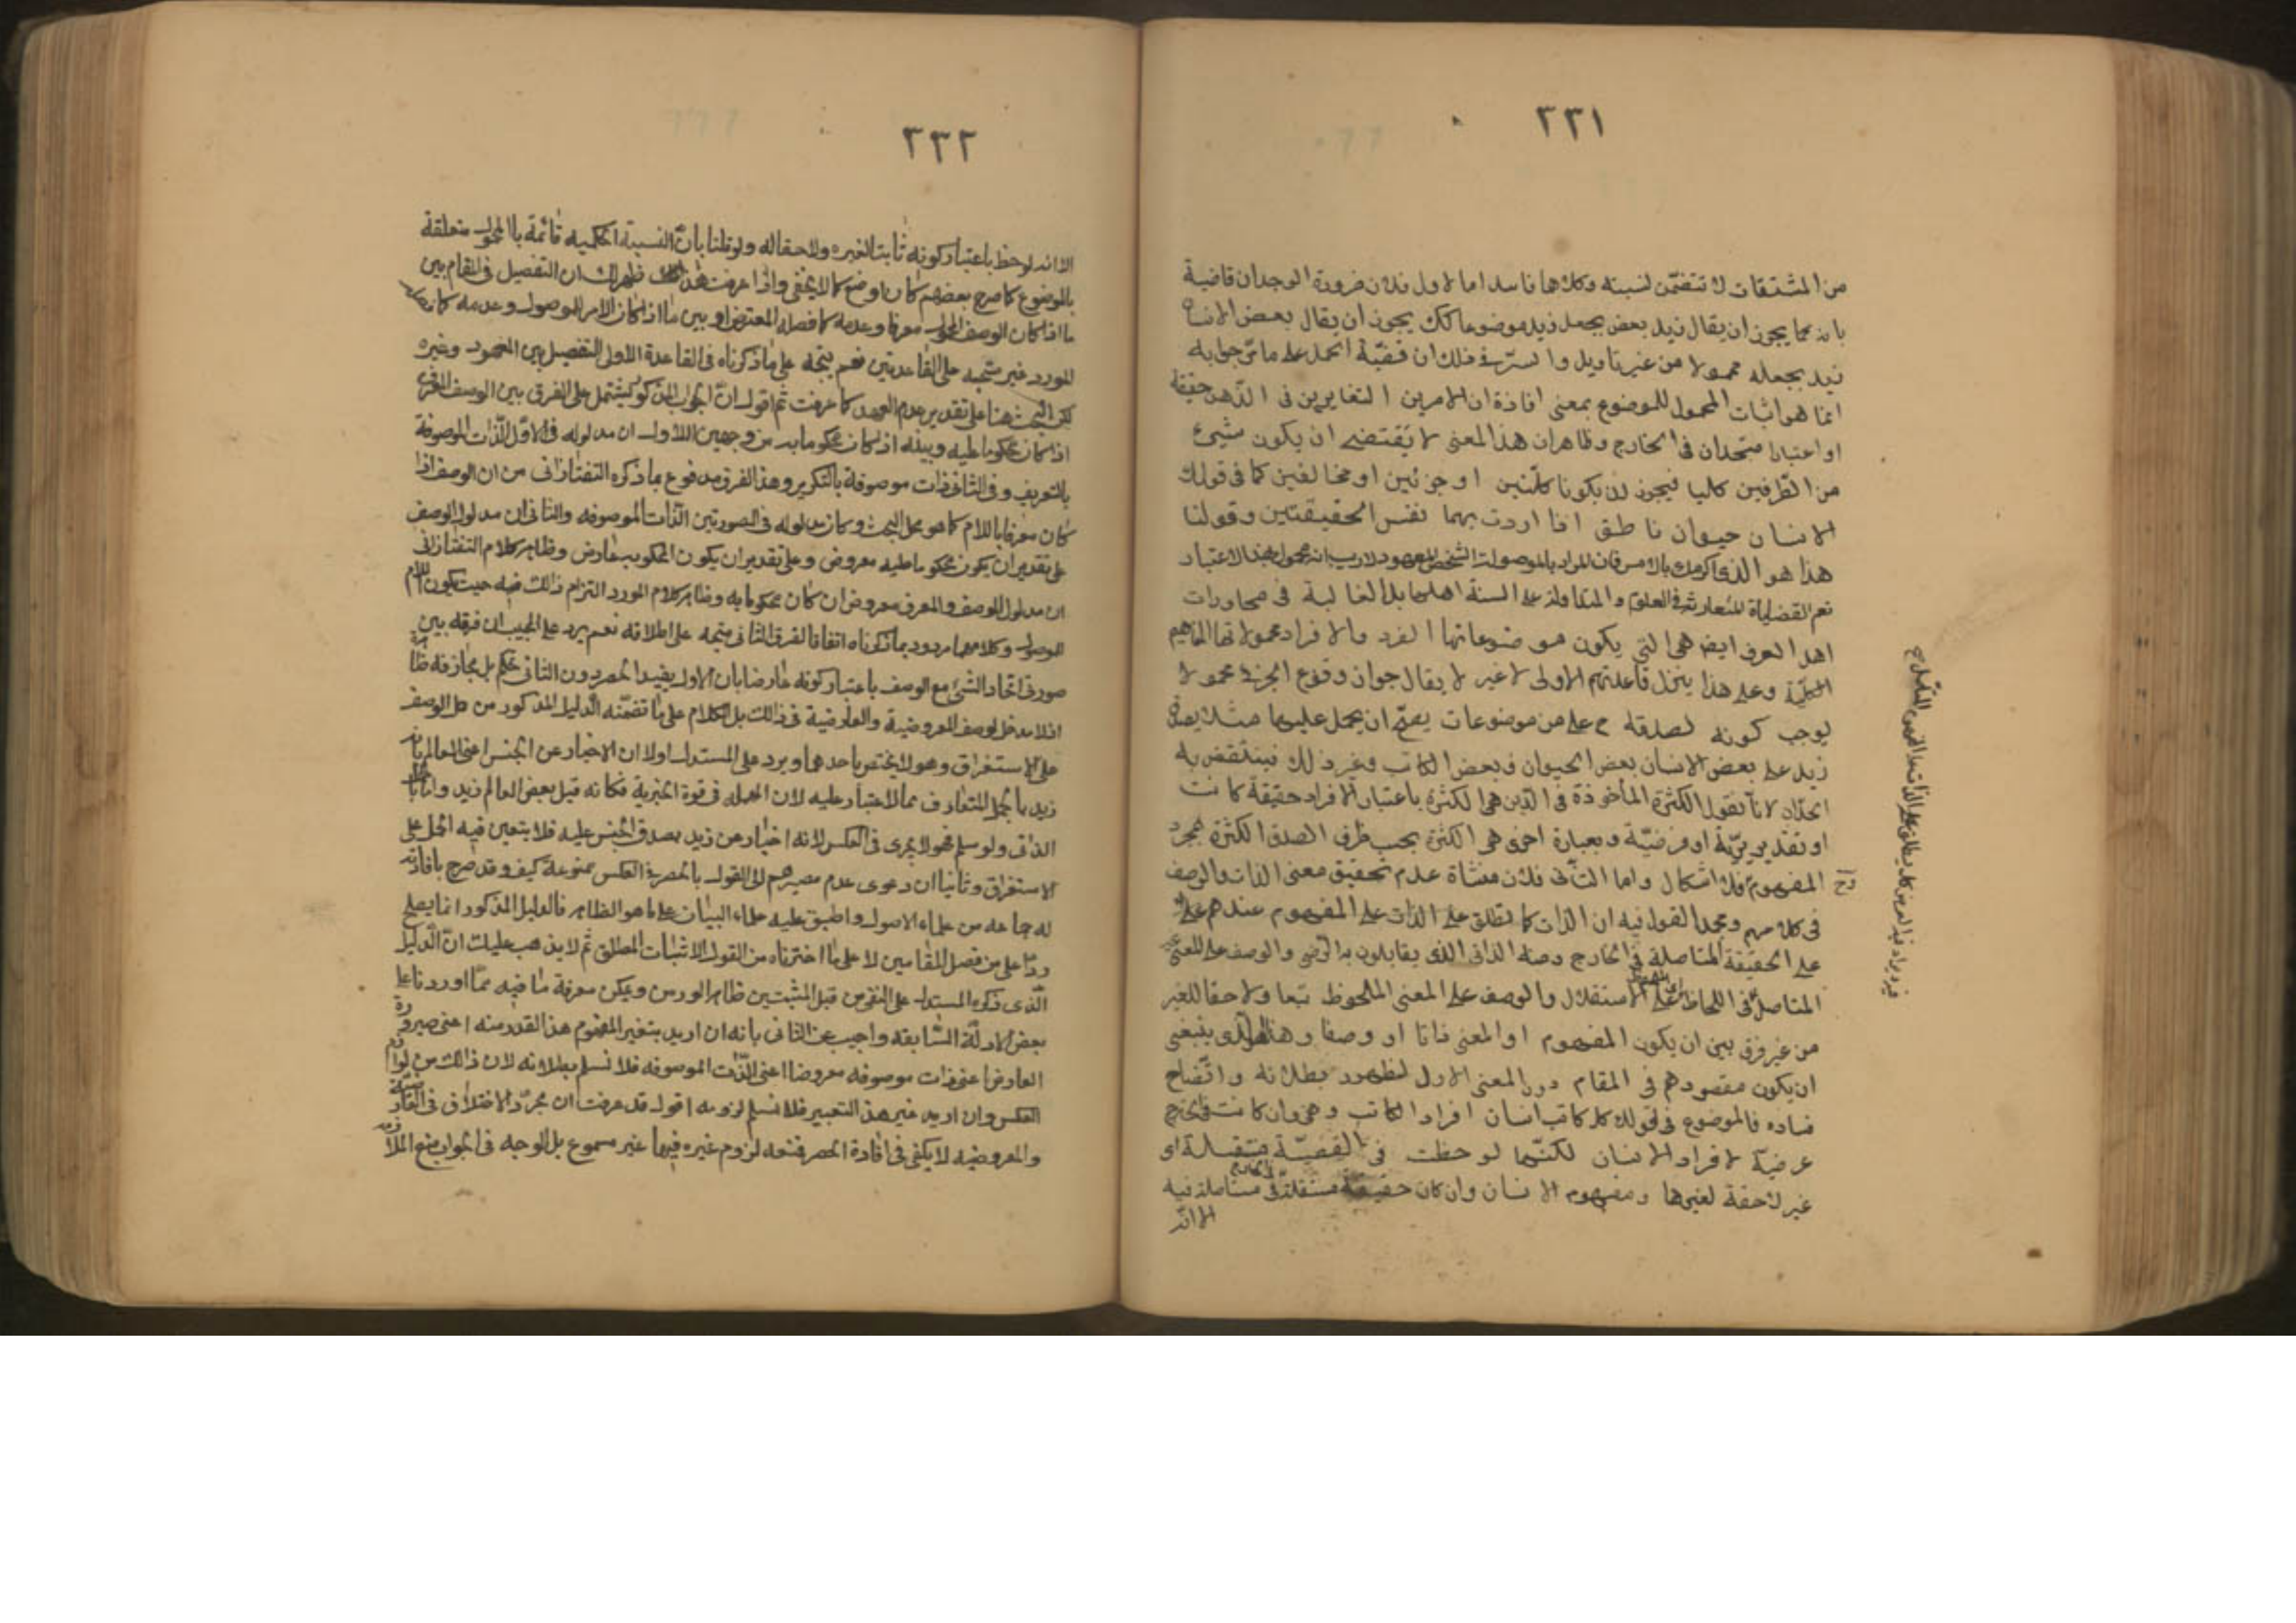 ٢٣١
من المشتقات لا تتضمّن لنسبته وكلاهما فاسد اما الاول فلان ضرورة الوجدان قاضية
بانه كما يجوز ان يقال زيد بعض بجعل زيد موضوعا كك يجوز ان يقال بعض الانسان
زيد بجعله محمولا من غير تاويل والسرّ فى ذلك ان قضيّة الحمل على ما مرّ جوابه
انما هو اثبات المحمول للموضوع بمعنى افادة ان الامرين المتغايرين فى الذهن حقيقة
او اعتبارا متحدان فى الخارج وظاهر ان هذا المعنى لا يقتضى ان يكون شيئ
من الطّرفين كليا فيجوز ان يكونا كلّيّين او جزئين او مخالفين كما فى قولك
الانسان حيوان ناطق اذا اردت بهما نفس الحقيقتين وقولنا
هذا هو الذى اكرمك بالامس فان المراد بالموصولة الشخص المعهود لا ريب انه محمول بهذا الاعتبار
نعم القضاياة المتعارفة فى العلوم والمتداولة على السنة اهلها بل الغالبة فى محاورات
اهل العرف ايضا هى التى يكون موضوعاتها الفرد والافراد محمولاتها المفاهيم
الكليّة وعلى هذا ينزل قاعدتهم الاولى لا غير لا يقال جواز وقوع الجزئى محمولا
يوجب كونه لصدقه ح على من موضوعات يصحّ ان يحمل عليها مثلا يصدق
زيد على بعض الانسان بعض الحيوان وبعض الكاتب وغير ذلك فينتقض به
الحدّان لانّا نقول الكثرة المأخوذة فى الذين هى الكثرة باعتبار الافراد حقيقة كانت
او تقديريّة او فرضيّة وبعبارة اخرى هى الكثرة بحسب طرف الصدق الكثرة بمجرد
المفهوم فلا اشكال واما الثانى فلان منشاة عدم تحقيق معنى الذات والوصف
فى كلامهم ومجمل القول فيه ان الذات كما تطلق على الذات على المفهوم عندهم على
على الحقيقة المتاصلة فى الخارج ومنه الذاتى الذى يقابلون به الرضى والوصف على المعنى غير
المتاصل فى اللحاظ على الاستقلال والوصف على المعنى الملحوظ تبعا ولاحقا للغير
من غير فرق بين ان يكون المفهوم او المعنى ذاتا او وصفا وهذا هو الذى ينبغى
ان يكون مقصودهم فى المقام دون المعنى الاول لظهور بطلانه واتّضاح
فساده فالموضوع فى قولك كل كاتب انسان افراد الكاتب وهى وان كانت فى الخارج
عرضيّة لافراد الانسان لكنّها لوحظت فى القضيّة مستقلة اى
غير لاحقة لغيرها ومفهوم الانسان وان كان حقيقة مستقلة فى متاصلة فيه
الا انّه
٢٣٢
الا انه لوحظ باعتبار كونه ثابتا لغيره ولاحقا له ولو قلنا بان النسبة الحكمية قائمة بالمحمول متعلقة
بالموضوع كما صرح بعضهم كان اوضح كما لا يخفى واذا عرفت هذا ظهر لك ان التفصيل فى المقام بين
ما اذا كان الوصف المحمول معرفا وعدمه كما فصله المعترض او بين ما اذا كان الامر للموصول وعدمه كما
المورد غير متجه على القاعدتين نعم يتجه على ما ذكرناه فى القاعدة الاول التفصيل بين المعهود وغيره
لكن البحث هنا على تقدير عدم العهد كما عرفت ثم اقول انّ الجواب المذكور يشتمل على الفرق بين الوصف المعرف
اذا كان محكوما عليه وبينه اذا كان محكوما به من وجهين الاول ان مدلوله فى الاوّل الذّات الموصوفة
بالتعريف وفى الثانى ذات موصوفة بالتنكير وهذا الفرق مدفوع بما ذكره التفتازانى من ان الوصف اذا
كان معرفا باللام كما هو محل البحث وكان مدلوله فى الصورتين الذّات الموصوفه والثانى ان مدلول الوصف
على تقدير ان يكون محكوما عليه معروض وعلى تقدير ان يكون المحكوم به عارض وظاهر كلام التفتازانى
ان مدلول الوصف والمعرف معروض ان كان محكوما به وظاهر كلام المورد التزام ذالك فيه حيث يكون اللام
للموصول وكلاهما مردود بما ذكرناه اتفاقا الفرق الثانى متجه على اطلاقه نعم يرد على المجيب ان فرقه بين
صورتى اتحاد الشئ مع الوصف باعتبار كونه عارضا بان الاول يفيد الحصر دون الثانى تحكم بل مجازفة ظاهرة
اذ لا مدخل لوصف المعروضية والعارضية فى ذالك بل الكلام على ما تضمّنه الدليل المذكور من حمل الوصف
على الاستغراق وهو لا يختص باحدهما ويرد على المستدل اولا ان الاخبار عن الجنس اعنى العالم بانه
زيد بالحمل المتعارف مما لا اعتبار عليه لان المهملة فى قوة الجزئية فكانه قيل بعض العالم زيد واما
الذاتى ولو سلم فهو لا يجرى فى العكس لانه اخبار عن زيد بصدق الجنس عليه فلا يتعين فيه الحمل على
الاستغراق وثانيا ان دعوى عدم مصيرهم الى القول بالحصر فى العكس ممنوعة كيف وقد صرح بافادته
له جماعه من علماء الاصول واطبق عليه علماء البيان على ما هو الظاهر فالدليل المذكور انما يصلح
ردّا على من فصل المقامين لا على ما اخترناه من القول الاثبات المطلق ثم لا يذهب عليك انّ الدّليل
الّذى ذكره المستدل على النقض من قبل المثبتين ظاهر الورس ويمكن معرفة ما فيه ممّا اوردنا على
بعض الادلّة السّابقه واجيب عن الثانى بانه ان اريد بتغير المفهوم هذا القدر منه اعنى صيرورة
العارض اعنى ذات موصوفه معروضا اعنى الذّات الموصوفه فلا نسلم بطلانه لان ذالك من لوازم
العكس وان اريد غير هذا التعبير فلا نسلم لزومه اقول قد عرفت ان مجرّد الاختلاف فى العارضية
والمعروضيه لا يكفى فى افادة الحصر فمنعه لزوم غيره فيها غير مسموع بل الوجه فى الجواب منع الملازمه